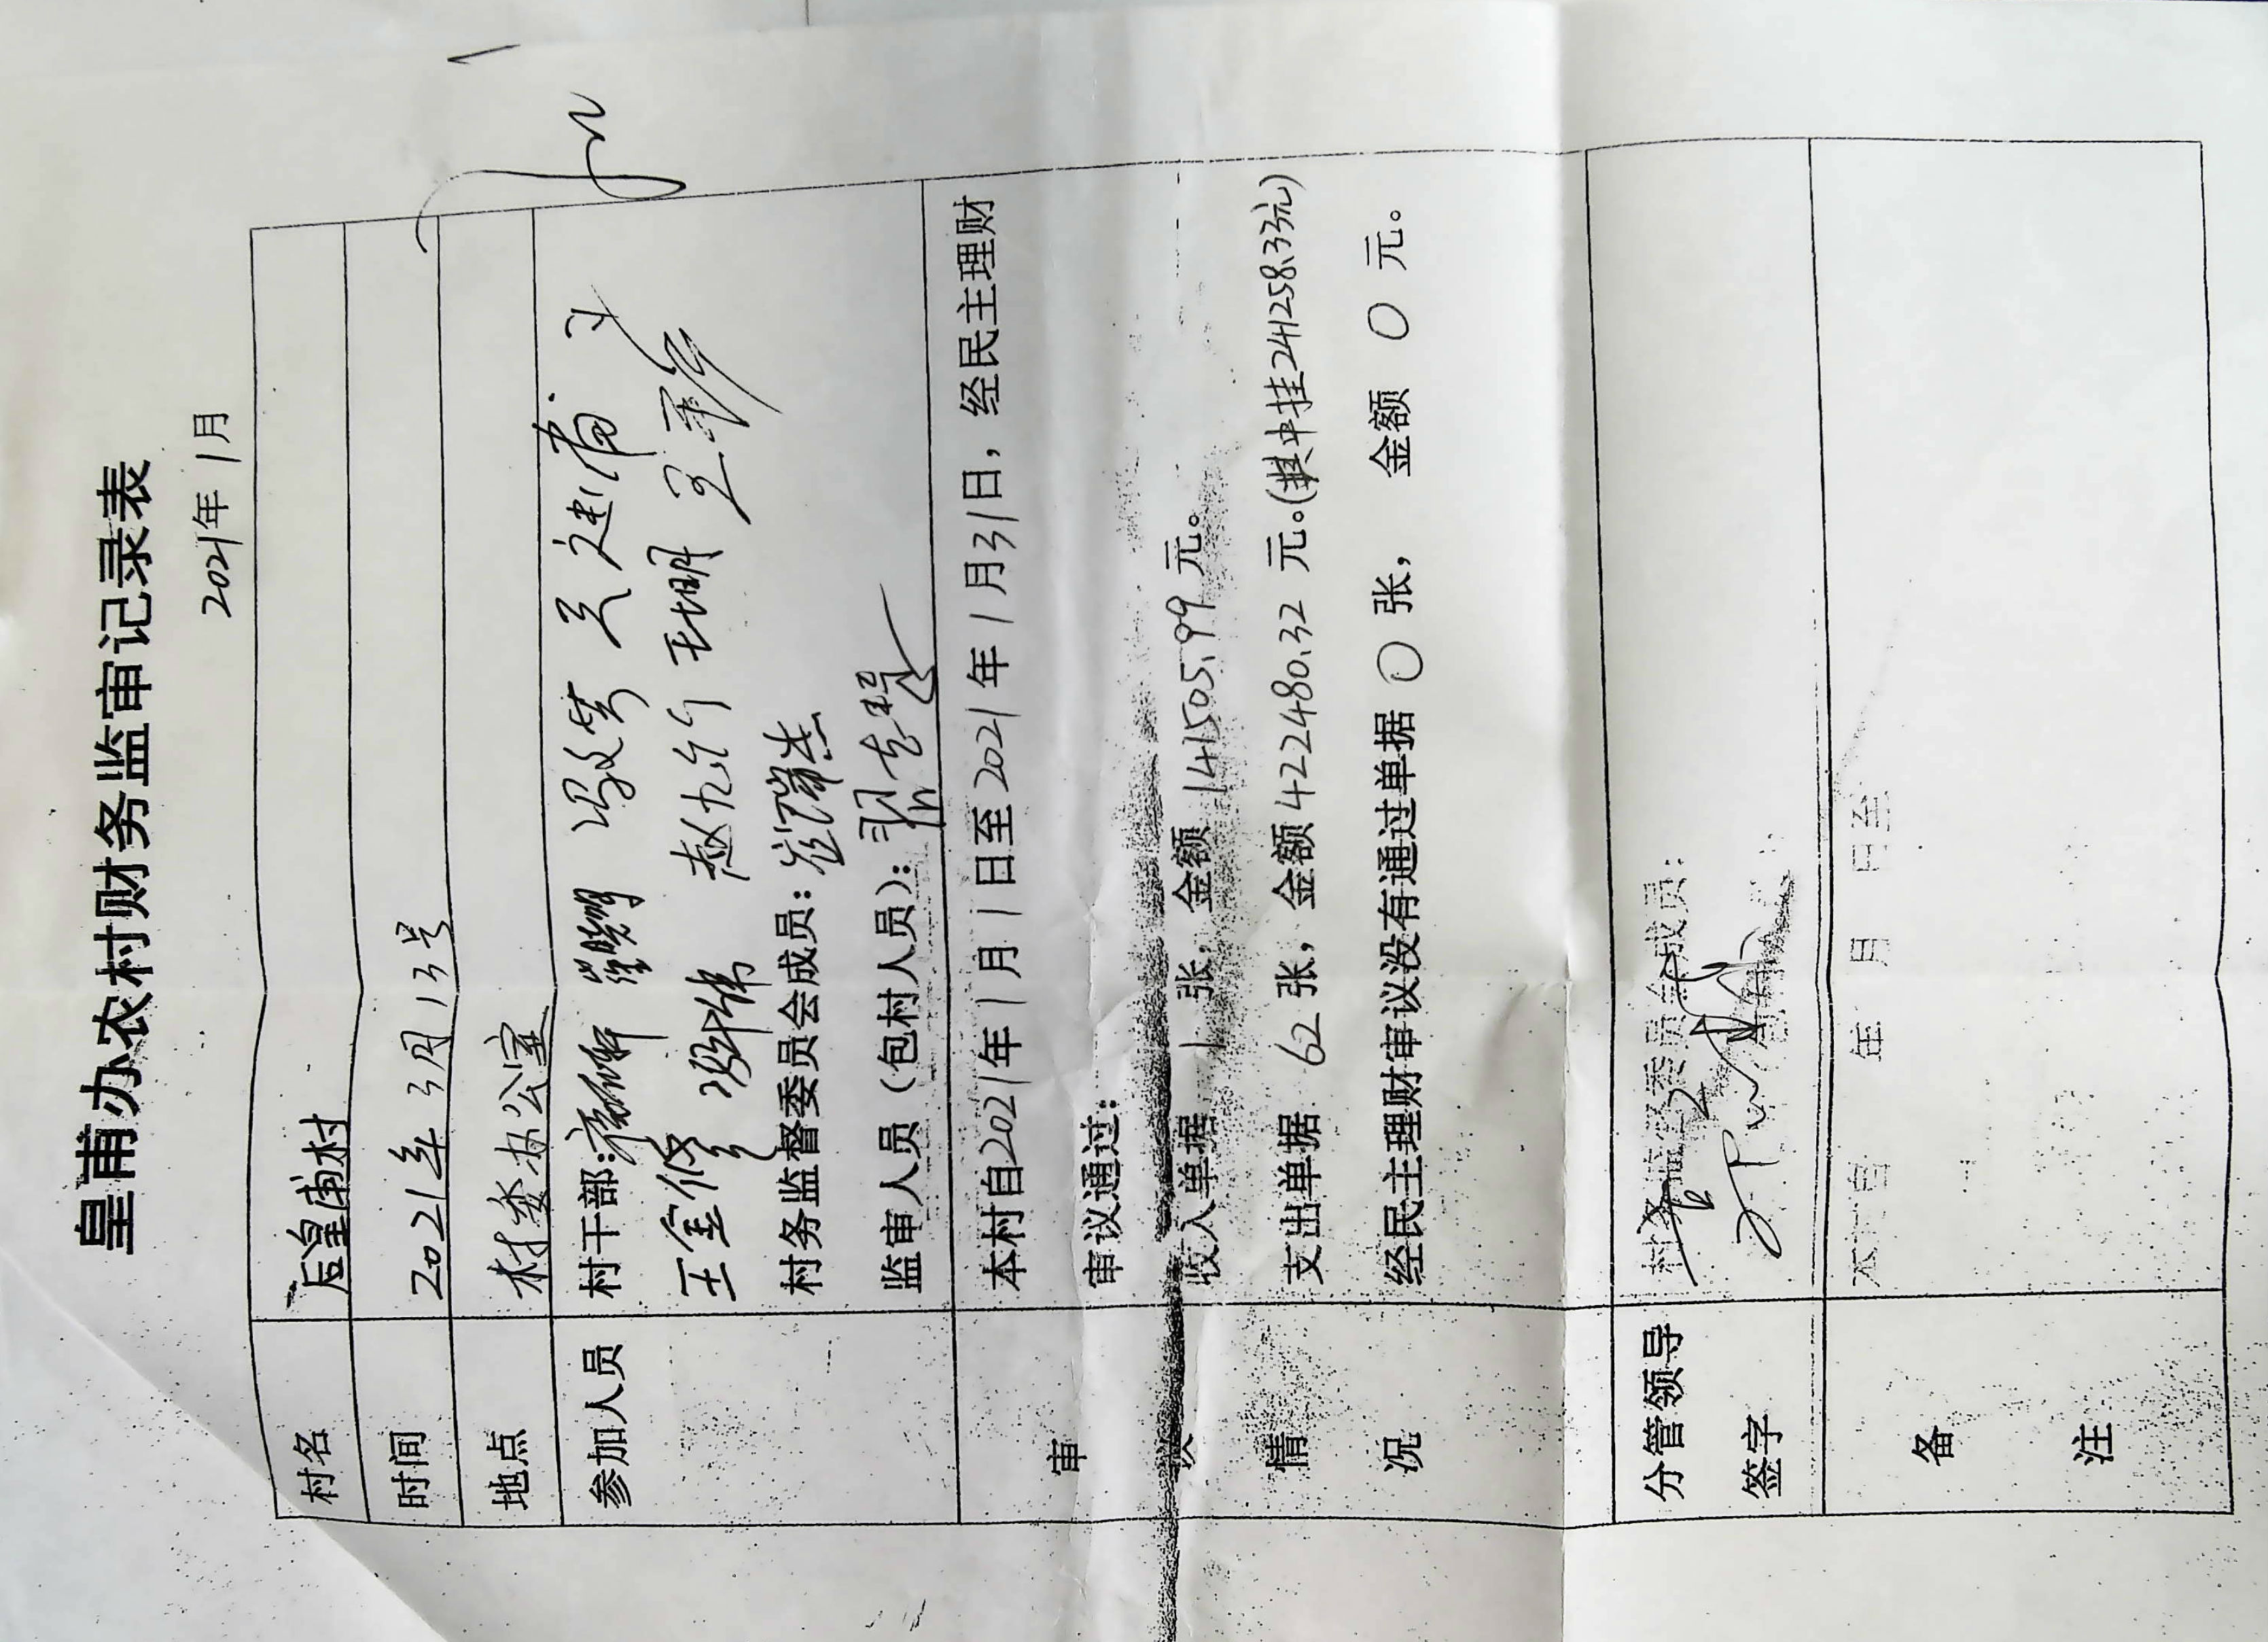 皇甫办农村财务监审记录表
2021年 1月
村名 后皇甫村
时间 2021年3月13号
地点 村委办公室
参加人员 村干部:
王金修
村务监督委员会成员:崔瑞杰
监审人员(包村人员):
审议情况 本村自2021年1月1日至2021年1月31日,经民主理财
审议通过:
收入单据 1 张,金额 141505.99 元。
支出单据 62 张,金额 422480.32 元。(其中挂241258.33元)
经民主理财审议没有通过单据 0 张, 金额 0 元。
分管领导
签字
村务监督委员会成员:
备注
本村自 年 月 日至